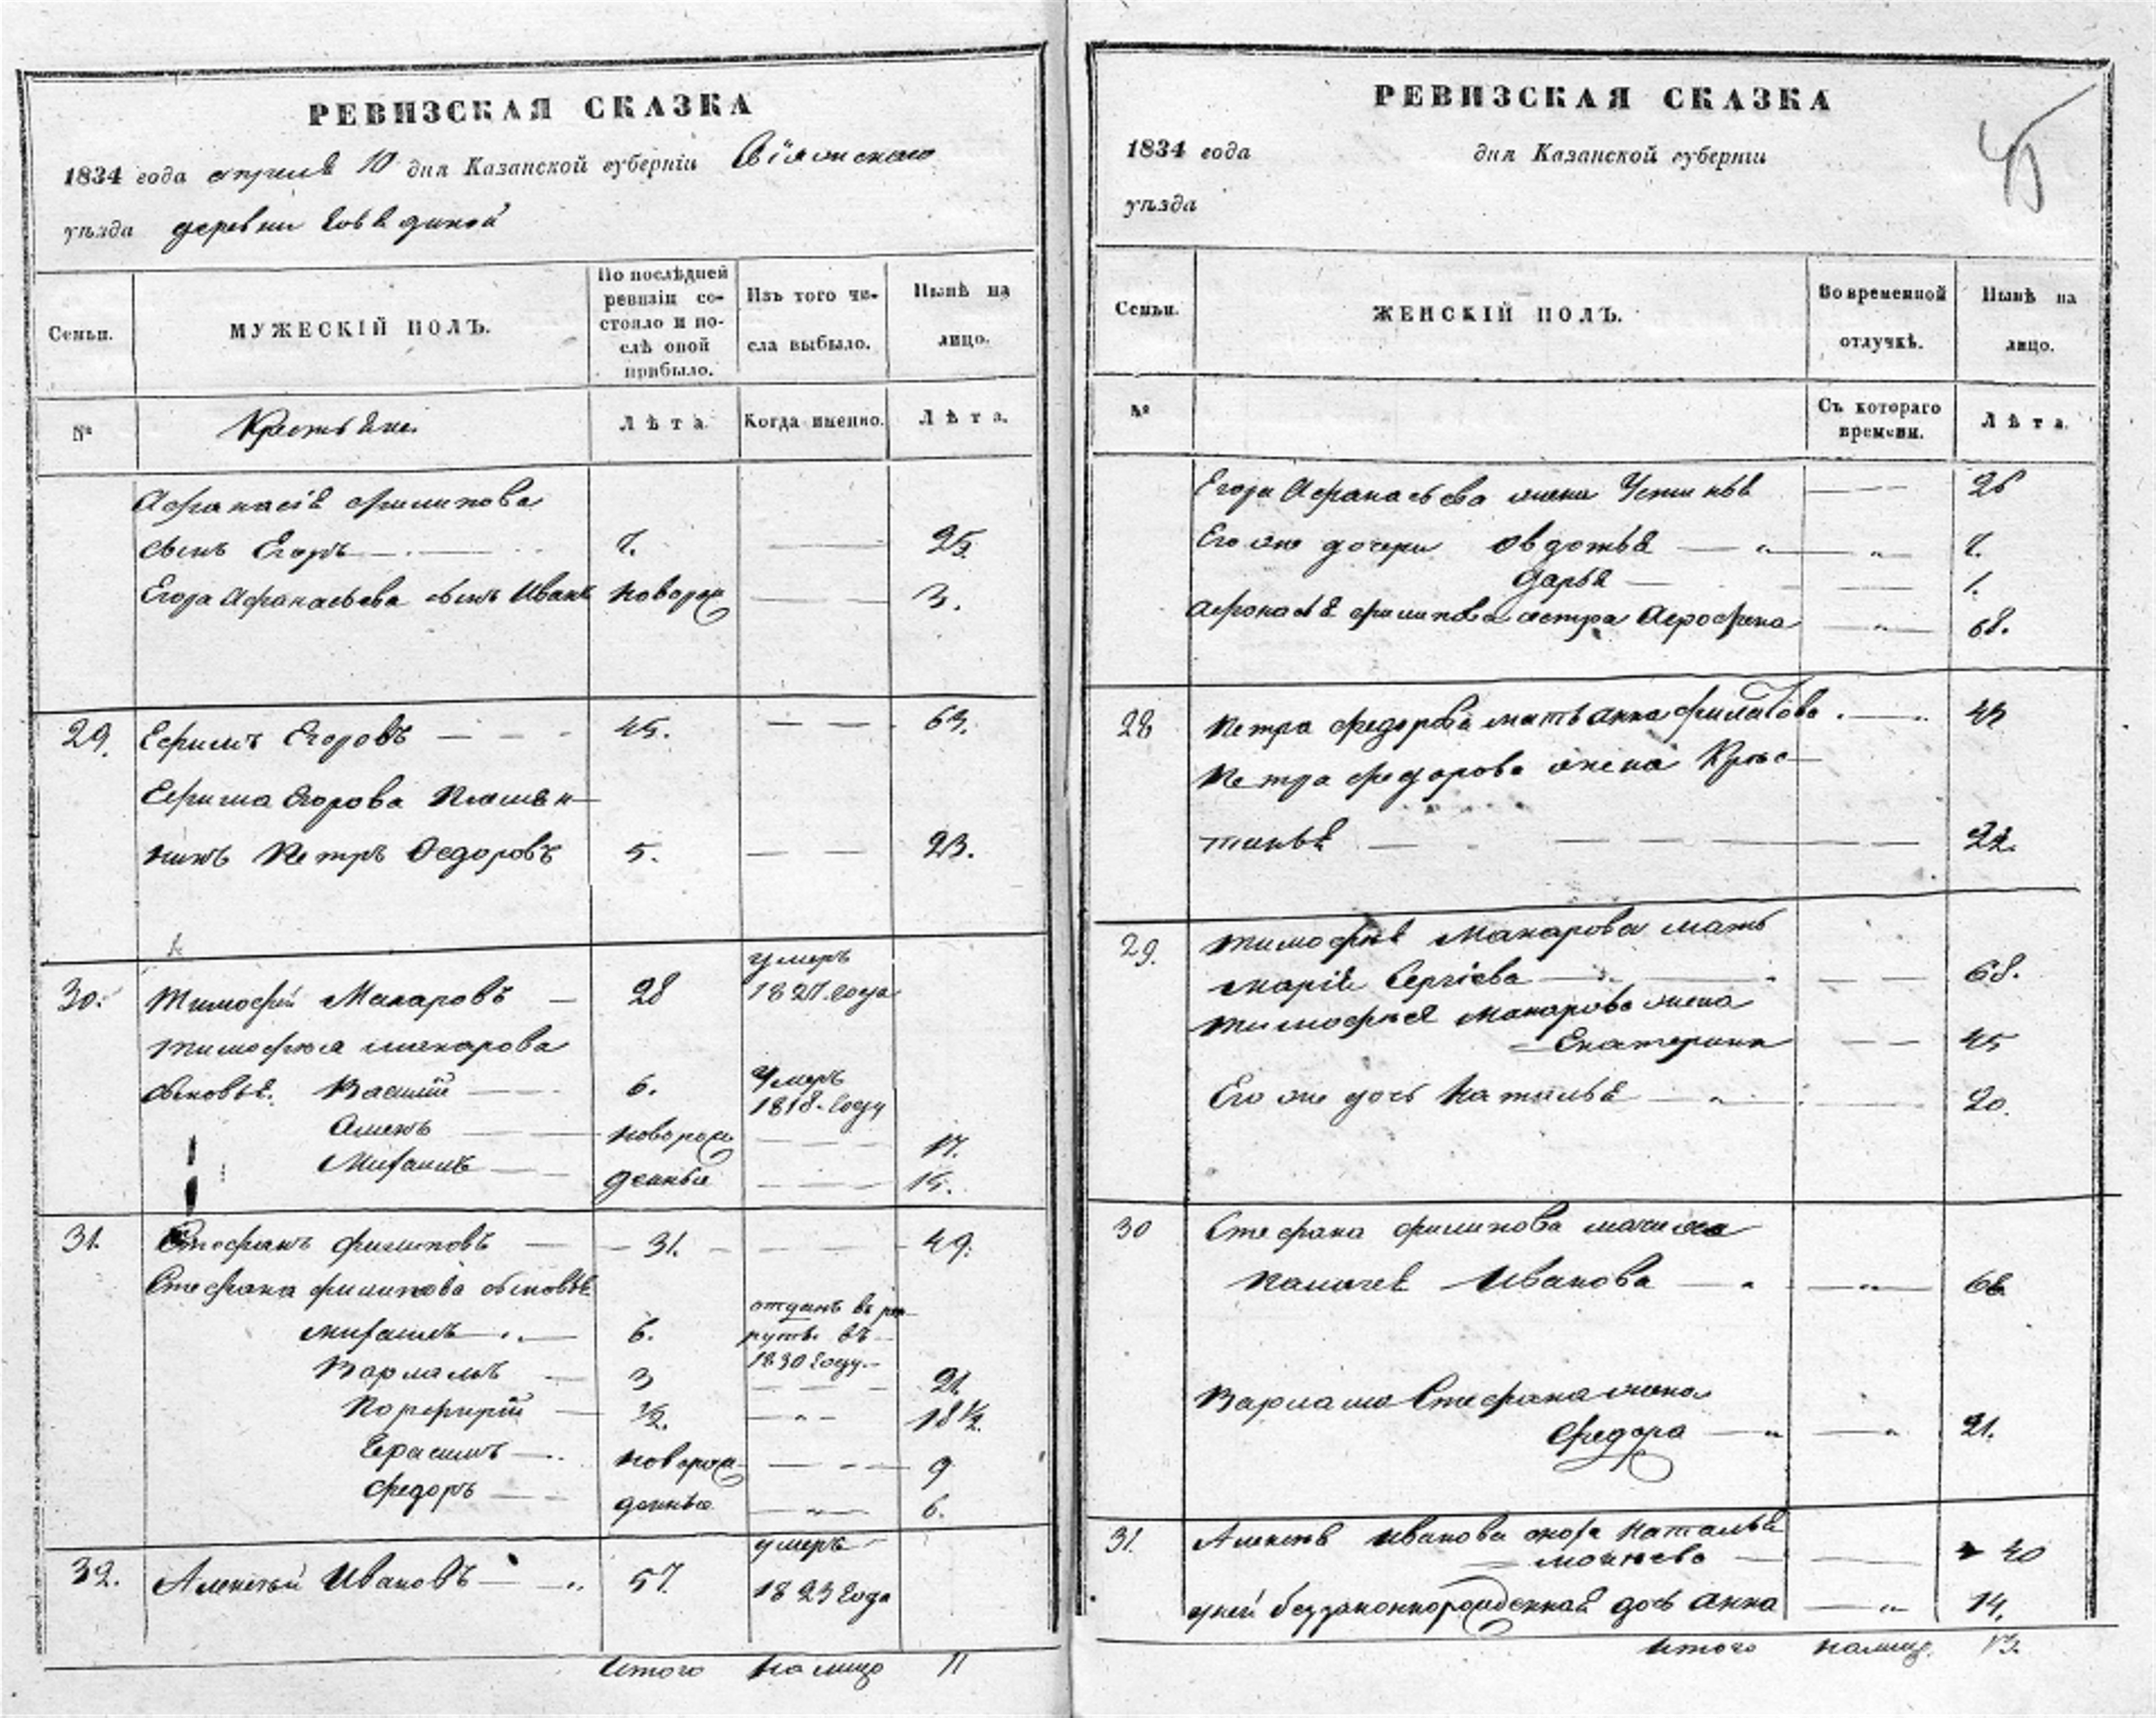 РЕВИЗСКАЯ СКАЗКА
1834 года апреля 10 дня Казанской губерніи
уѣзда деревни
Семьи.
МУЖЕСКІЙ ПОЛЪ.
По послѣдней ревизіи со-
стояло и по-
слѣ оной
прибыло.
Изъ того чи-
сла выбыло.
Нынѣ на
лицо.
№
Крестьяне.
Лѣта.
Когда именно.
Лѣта.
Афанасія Филипова
сынъ Егоръ 7. 25.
Егора Афанасьева сынъ Иванъ новорож 3.
29. Ефимъ Егоровъ 45. 63.
Ефима Егорова племян-
никъ Петръ Федоровъ 5. 23.
30. Тимофей Макаровъ 28 умеръ 1827 года
Тимофея Макарова
сыновья. Василій 6. Умеръ 1818 году
новорож 17.
Михаилъ денные 15.
31. Стефанъ Филиповъ 31. 49.
Стефана Филипова сыновья
Михаилъ 6. отданъ въ ре-
круты въ
1830 году.
Варламъ 3 21
Порфирій 1/2. 18 1/2.
Герасимъ новорож 9
Федоръ денные 6.
32. Алексѣй Ивановъ 57. умеръ
1823 года
Итого на лицо 11
РЕВИЗСКАЯ СКАЗКА
45
1834 года дня Казанской губерніи
уѣзда
Семьи.
ЖЕНСКІЙ ПОЛЪ.
Во временной
отлучкѣ.
Нынѣ на
лицо.
№
Съ котораго
времени.
Лѣта.
Егора Афанасьева жена Устинья 26
Его же дочери Овдотья 7.
Дарья 1.
Афонасія Филипова сестра Афросиња 68.
28 Петра Федорова мать Анна Филатова 43
Петра Федорова жена Крис-
тинья 22.
29. Тимофея Макарова мать
Марія Сергіева 68.
Тимофея Макарова жена
Екатерина 45
Его же дочь Наталья 20.
30 Стефана Филипова мачиха
Иванова 66
Варлама Стефана жена
Федора 21.
31. Алексѣя Иванова сноха Наталья
40
у ней беззаконнорожденная дочь Анна 14.
Итого налицо 13.